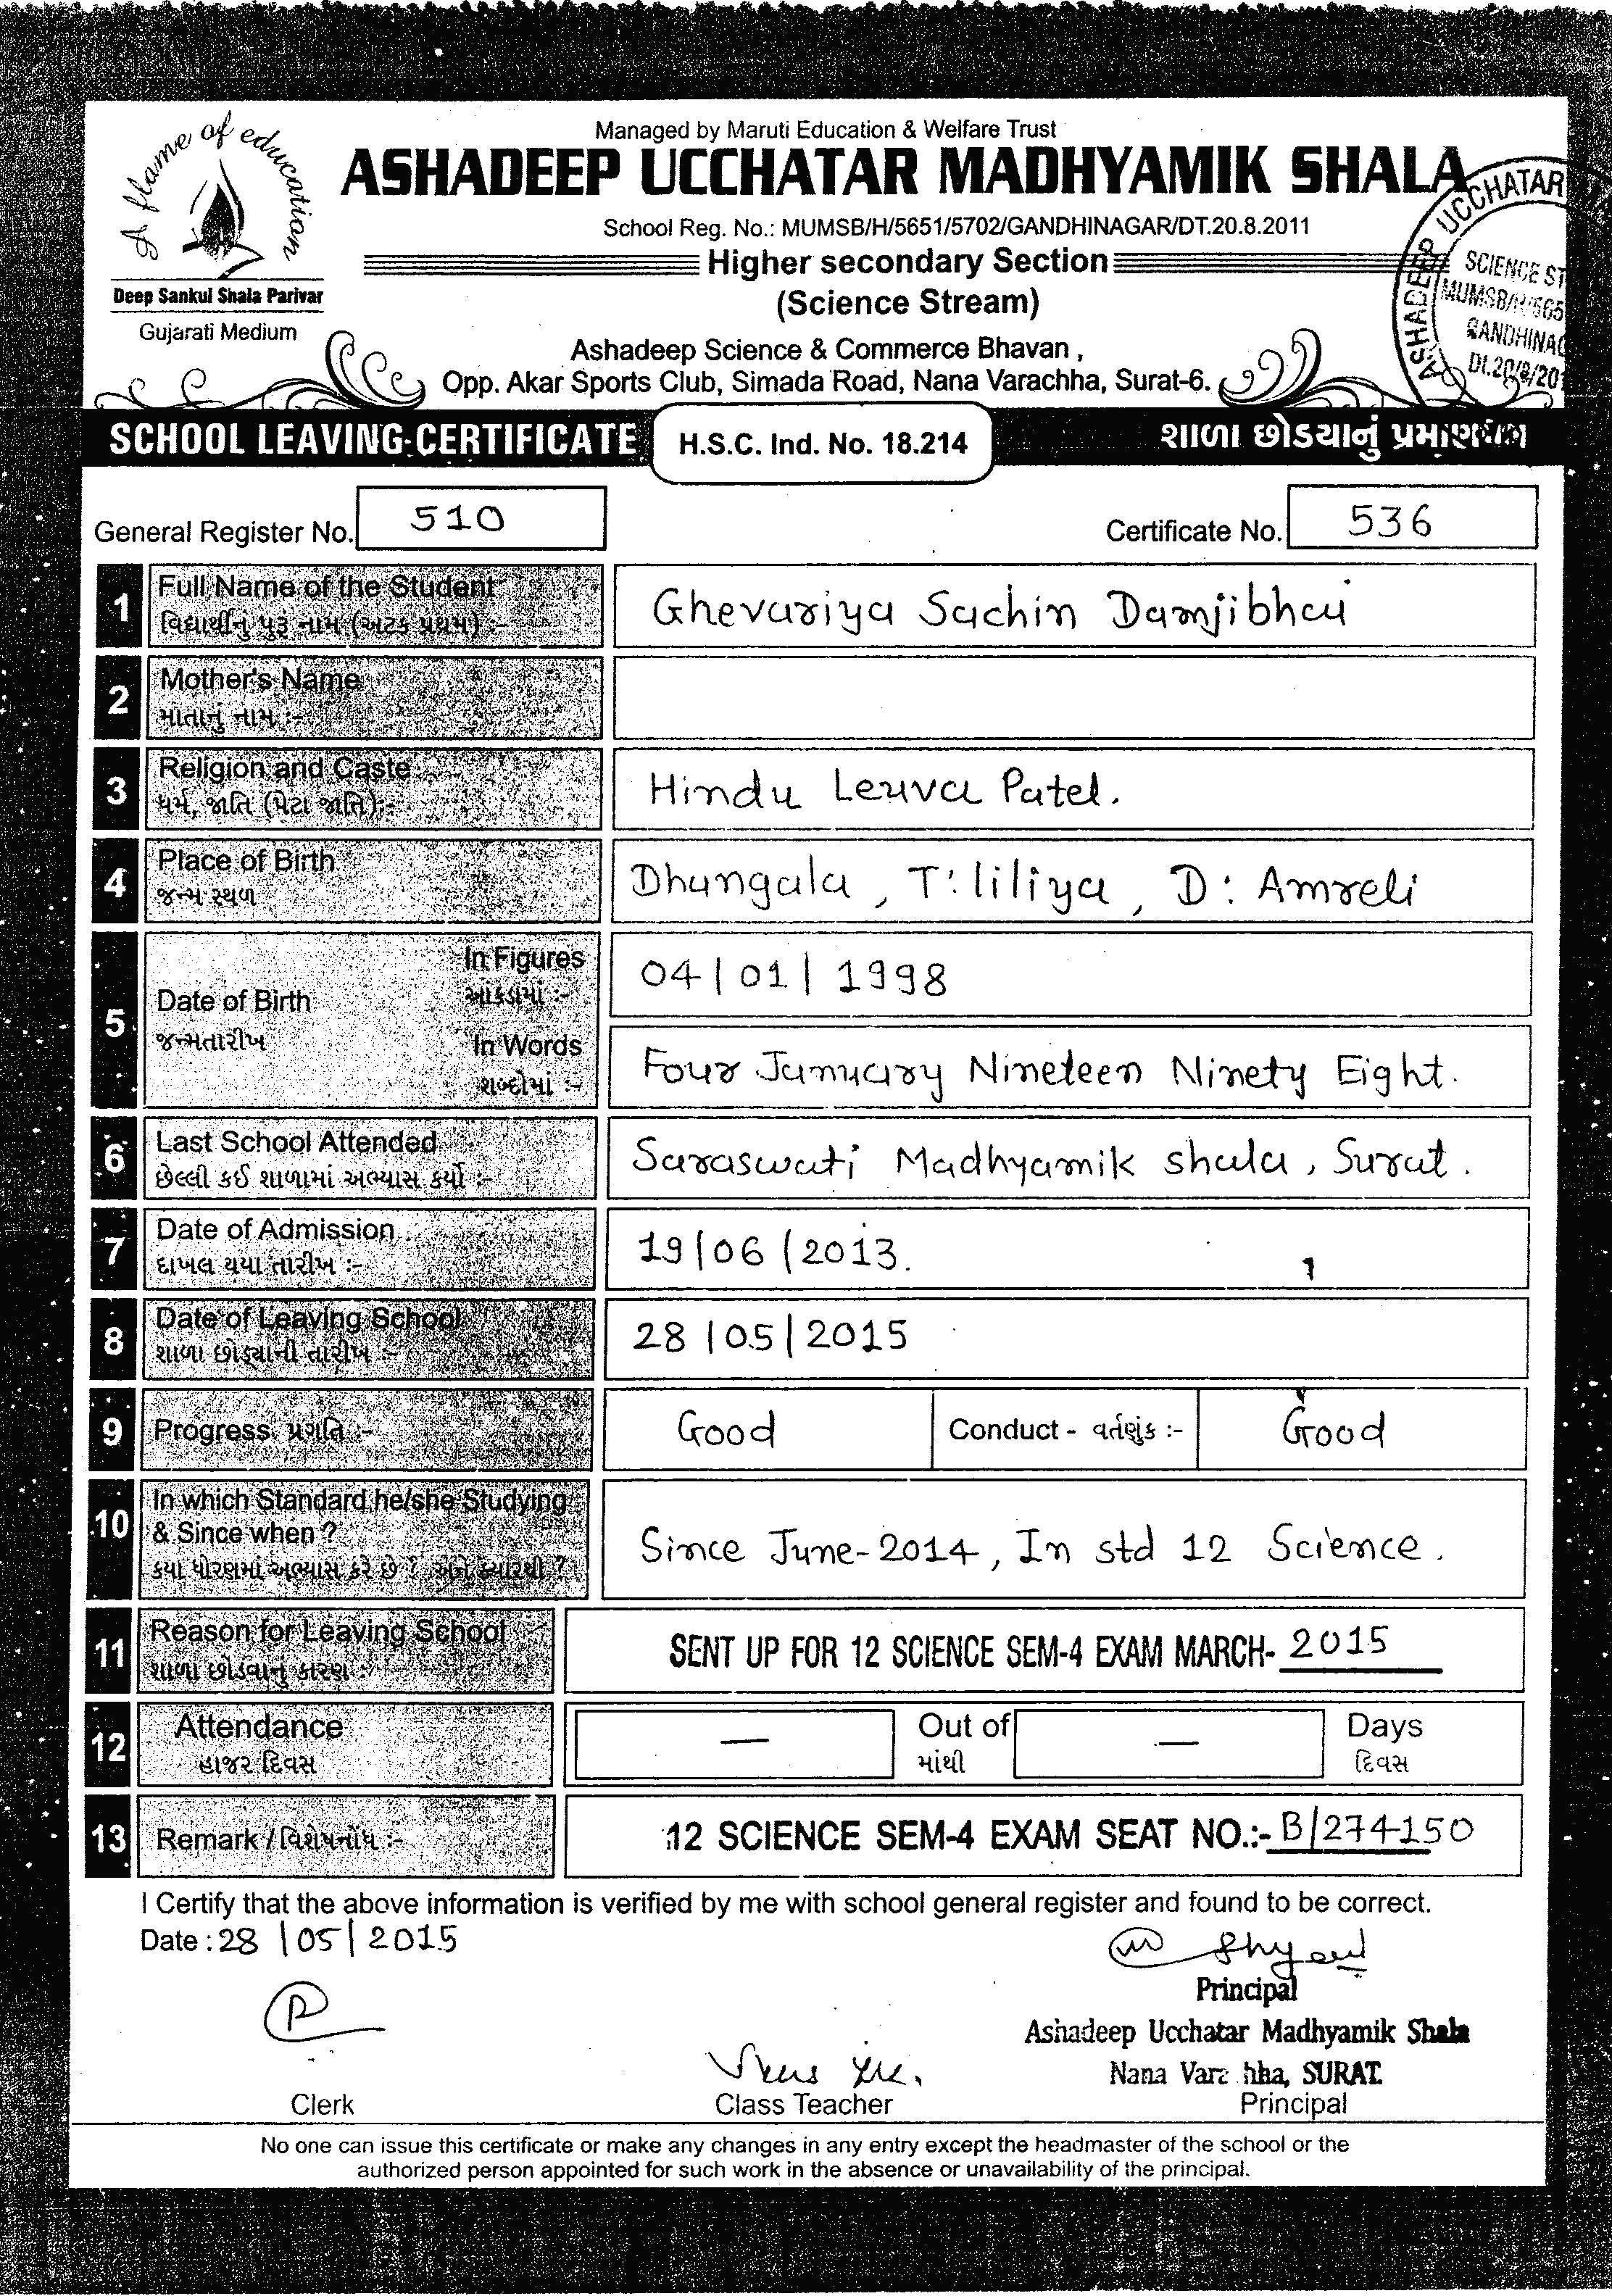 A flame of education
Deep Sankul Shala Parivar
Gujarati Medium
Managed by Maruti Education & Welfare Trust
ASHADEEP UCCHATAR MADHYAMIK SHALA
School Reg. No.: MUMSB/H/5651/5702/GANDHINAGAR/DT.20.8.2011
Higher secondary Section
(Science Stream)
Ashadeep Science & Commerce Bhavan ,
Opp. Akar Sports Club, Simada Road, Nana Varachha, Surat-6.
ASHADEEP UCCHATAR
SCIENCE ST
MUMSB/H/565
GANDHINAG
Dt.20/8/201
SCHOOL LEAVING CERTIFICATE
H.S.C. Ind. No. 18.214
શાળા છોડયાનું પ્રમાણપત્ર
General Register No. 510
Certificate No. 536
1 Full Name of the Student Ghevariya Sachin Damjibhai
વિદ્યાર્થીનું પુરૂ નામ (અટક પ્રથમ) :-
2 Mother's Name
માતાનું નામ :-
3 Religion and Caste Hindu Leuva Patel.
ધર્મ, જાતિ (પેટા જાતિ):-
4 Place of Birth Dhungala , T: liliya , D: Amreli
જન્મ સ્થળ
5 Date of Birth In Figures 04/01/1998
જન્મતારીખ આંકડામાં :-
In Words Four January Nineteen Ninety Eight.
શબ્દોમાં :-
6 Last School Attended Saraswati Madhyamik shala, Surat.
છેલ્લી કઈ શાળામાં અભ્યાસ કર્યો :-
7 Date of Admission 19/06/2013.
દાખલ થયા તારીખ :-
8 Date of Leaving School 28/05/2015
શાળા છોડ્યાની તારીખ :-
9 Progress પ્રગતિ :- Good Conduct - વર્તણુંક :- Good
10 In which Standard he/she Studying
& Since when ? Since June-2014, In std 12 Science.
કયા ધોરણમાં અભ્યાસ કરે છે ? અને ક્યારથી ?
11 Reason for Leaving School SENT UP FOR 12 SCIENCE SEM-4 EXAM MARCH- 2015
શાળા છોડવાનું કારણ :-
12 Attendance — Out of — Days
હાજર દિવસ માંથી દિવસ
13 Remark / વિશેષનોંધ :- 12 SCIENCE SEM-4 EXAM SEAT NO.:- B/274150
I Certify that the above information is verified by me with school general register and found to be correct.
Date : 28/05/2015
Principal
Ashadeep Ucchatar Madhyamik Shala
Nana Vara hha, SURAT.
Clerk Class Teacher Principal
No one can issue this certificate or make any changes in any entry except the headmaster of the school or the
authorized person appointed for such work in the absence or unavailability of the principal.